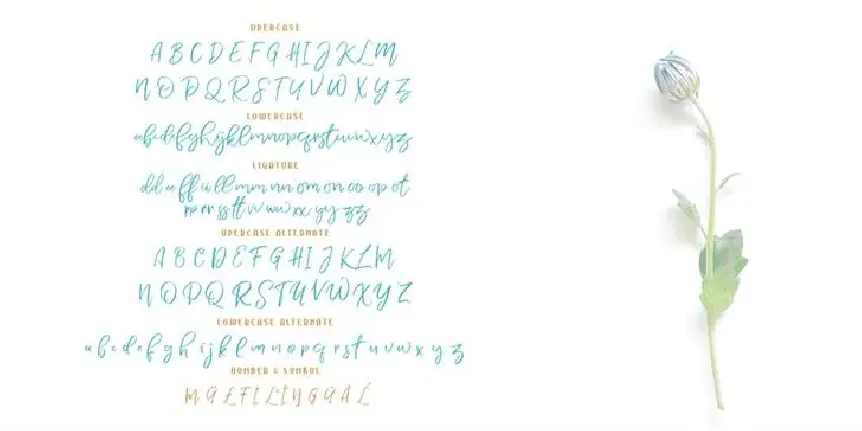 UPERCASE
A B C D E F G H I J K L M
N O P Q R S T U V W X Y Z
LOWERCASE
abcdefghijklmnopqrstuvwxyz
LIGATURE
dd ee ff ii ll mm nn om on oo op ot
pp rr ss tt vv ww xx yy zz
UPERCASE ALTERNATE
A B C D E F G H I J K L M
N O P Q R S T U V W X Y Z
LOWERCASE ALTERNATE
a b c d e f g h i j k l m n o p q r s t u v w x y z
NOMBED & SYMBOL